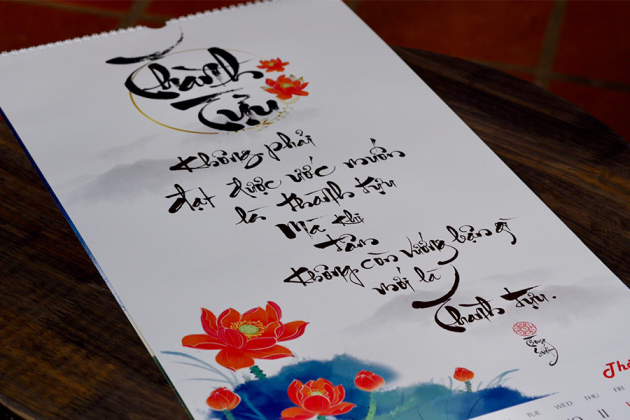 Thành
Tựu
Không phải
đạt được ước muốn
là thành tựu
Mà khi
Tâm
Không còn vướng bận gì
mới là
Thành tựu.
Thá
TUE WED THU FRI
11